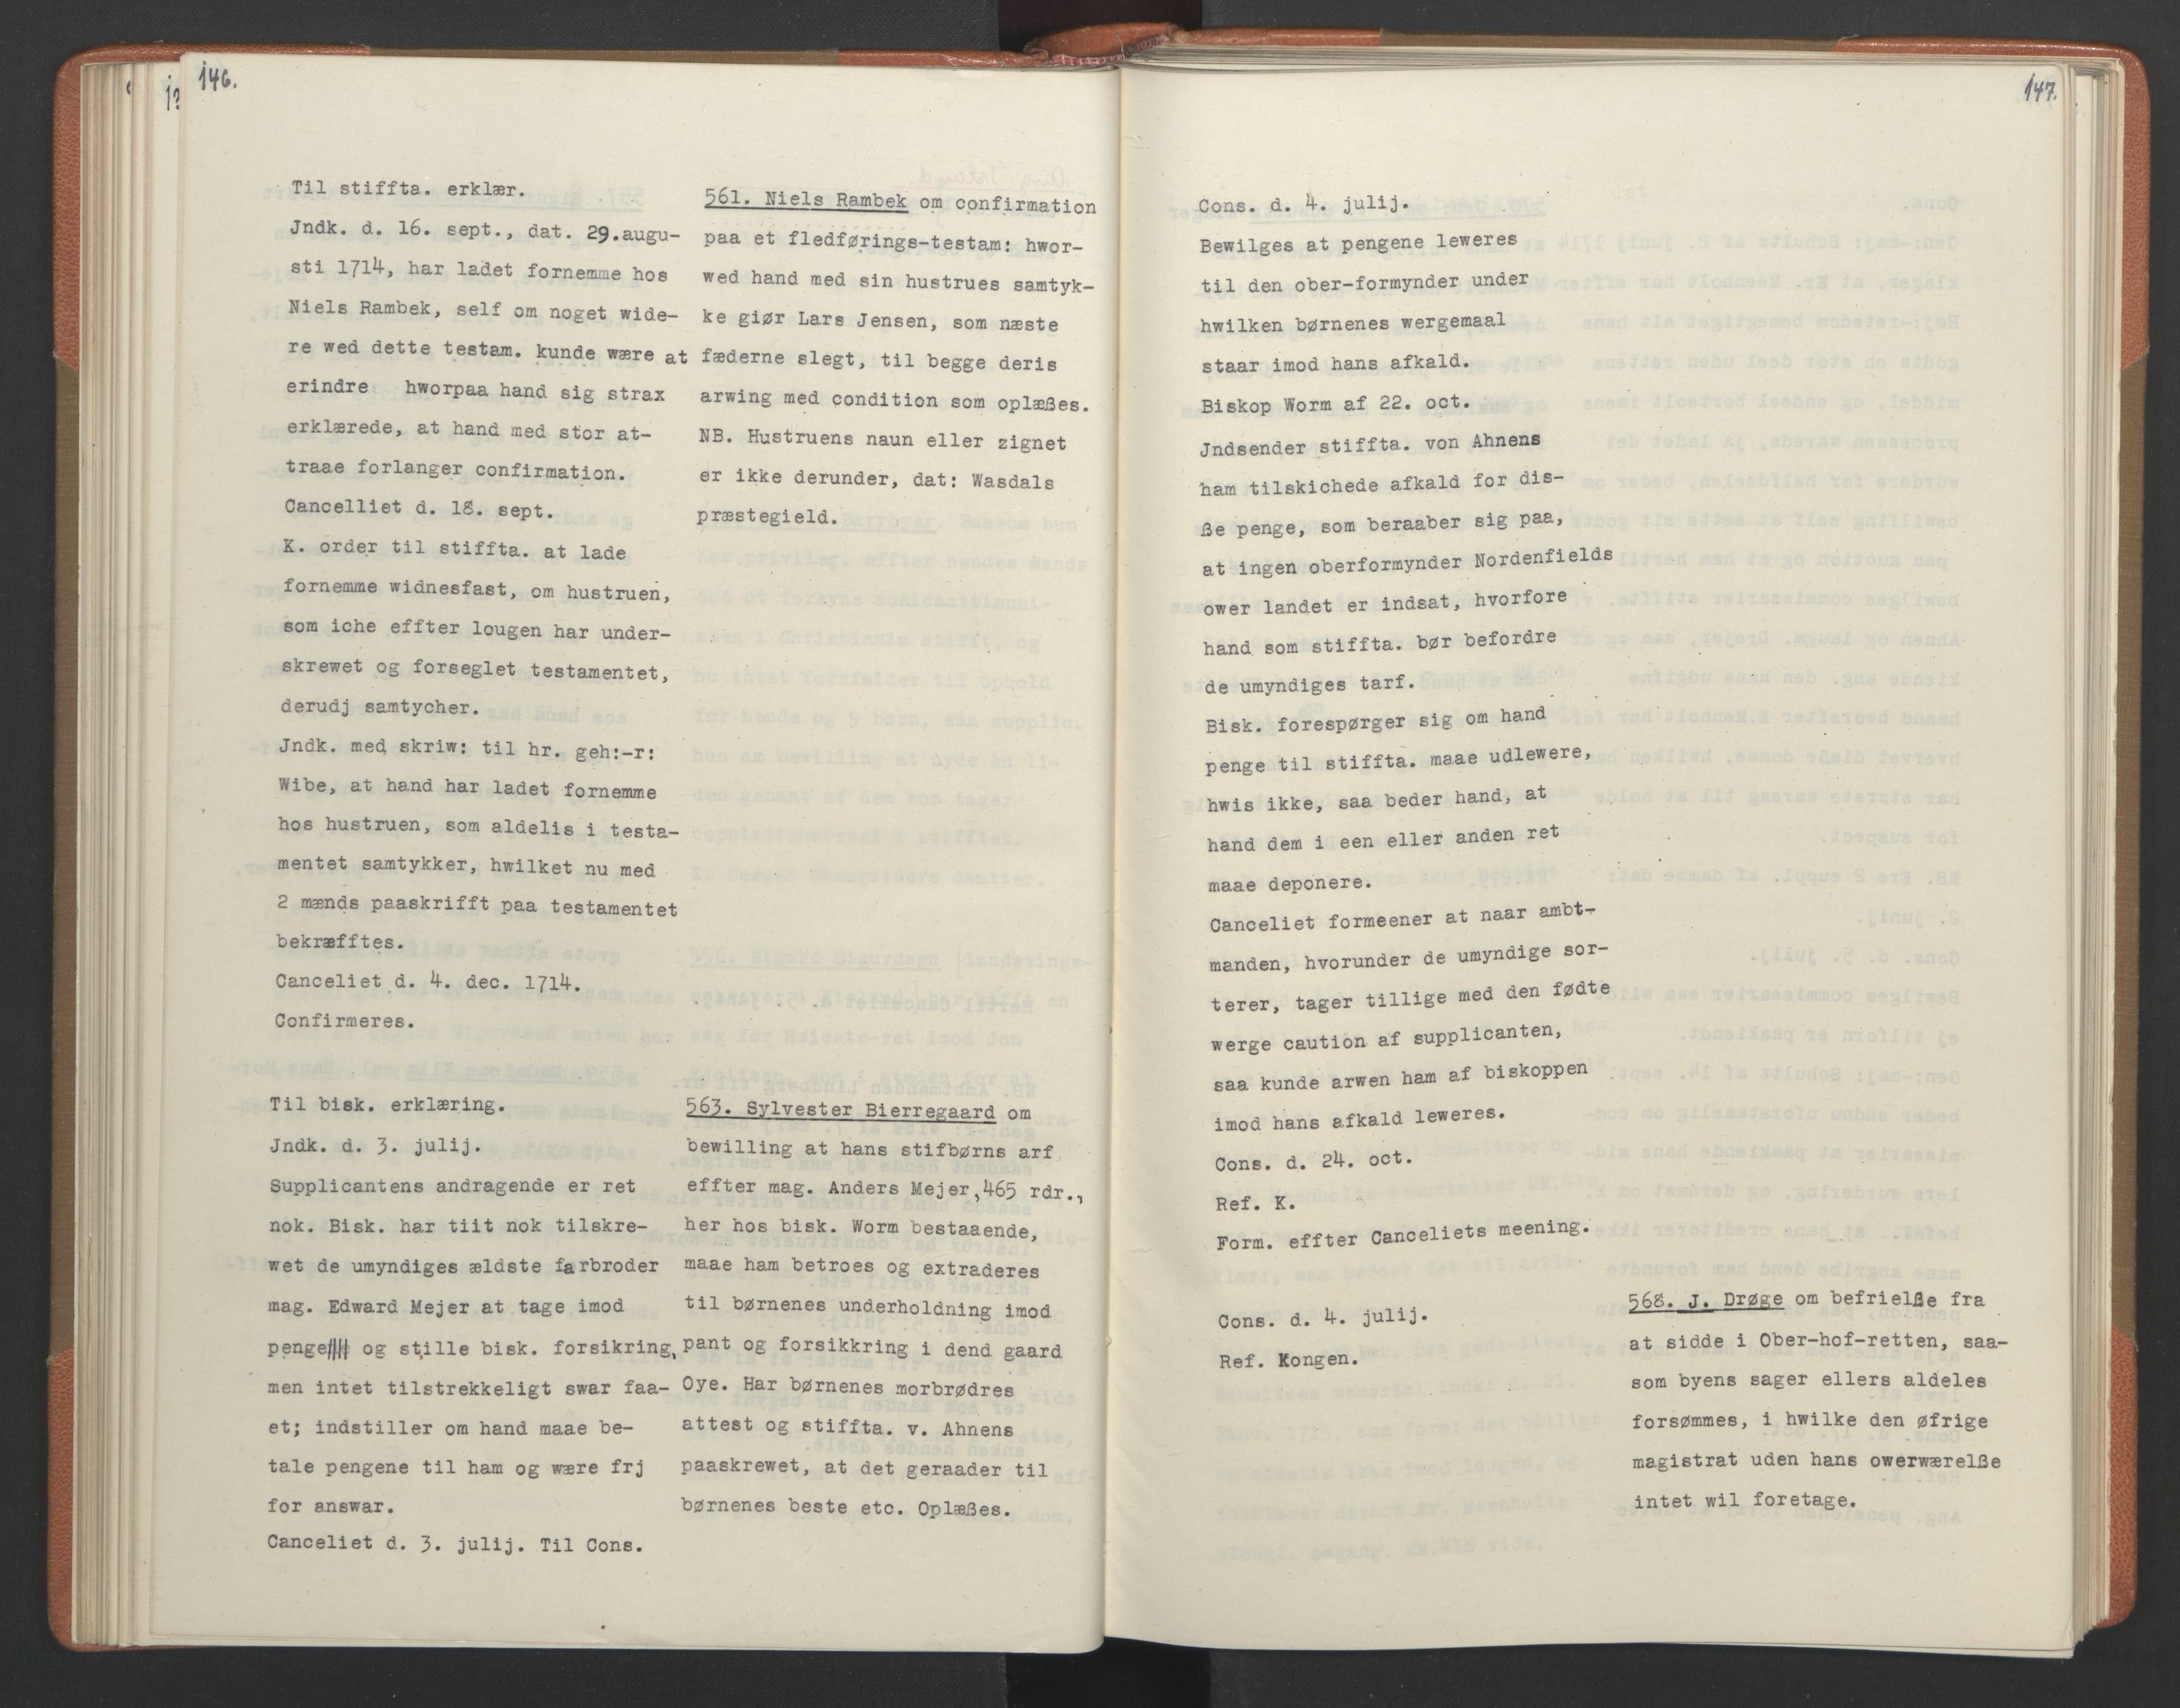 146.
Til stiffta. erklær.
Jndk. d. 16. sept., dat. 29.augu-
sti 1714, har ladet fornemme hos
Niels Rambek, self om noget wide-
re wed dette testam. kunde wære at
erindre hworpaa hand sig strax
erklærede, at hand med stor at-
traae forlanger confirmation.
Cancelliet d. 18. sept.
K. order til stiffta. at lade
fornemme widnesfast, om hustruen,
som iche effter lougen har under-
skrewet og forseglet testamentet,
derudj samtycher.
Jndk. med skriw: til hr. geh:-r:
Wibe, at hand har ladet fornemme
hos hustruen, som aldelis i testa-
mentet samtykker, hwilket nu med
2 mænds paaskrifft paa testamentet
bekræfftes.
Canceliet d. 4. dec. 1714.
Confirmeres.
561. Niels Rambek om confirmation
paa et fledførings-testam: hwor-
wed hand med sin hustrues samtyk-
ke giør Lars Jensen, som næste
fæderne slegt, til begge deris
arwing med condition som oplæßes.
NB. Hustruens naun eller zignet
er ikke derunder, dat: Wasdals
præstegield.
Til bisk. erklæring.
Jndk. d. 3. julij.
Supplicantens andragende er ret
nok. Bisk. har tiit nok tilskre-
wet de umyndiges ældste farbroder
mag. Edward Mejer at tage imod
penge og stille bisk. forsikring,
men intet tilstrekkeligt swar faa-
et; indstiller om hand maae be-
tale pengene til ham og wære frj
for answar.
Canceliet d. 3. julij. Til Cons.
563. Sylvester Bierregaard om
bewilling at hans stifbørns arf
effter mag. Anders Mejer, 465 rdr.,
her hos bisk. Worm bestaaende,
maae ham betroes og extraderes
til børnenes underholdning imod
pant og forsikkring i dend gaard
Oye. Har børnenes morbrødres
attest og stiffta. v. Ahnens
paaskrewet, at det geraader til
børnenes beste etc. Oplæßes.
147.
Cons. d. 4. julij.
Bewilges at pengene leweres
til den ober-formynder under
hwilken børnenes wergemaal
staar imod hans afkald.
Biskop Worm af 22. oct.
Jndsender stiffta. von Ahnens
ham tilskichede afkald for dis-
ße penge, som beraaber sig paa,
at ingen oberformynder Nordenfields
ower landet er indsat, hvorfore
hand som stiffta. bør befordre
de umyndiges tarf.
Bisk. forespørger sig om hand
penge til stiffta. maae udlewere,
hwis ikke, saa beder hand, at
hand dem i een eller anden ret
maae deponere.
Canceliet formeener at naar ambt-
manden, hvorunder de umyndige sor-
terer, tager tillige med den fødte
werge caution af supplicanten,
saa kunde arwen ham af biskoppen
imod hans afkald leweres.
Cons. d. 24. oct.
Ref. K.
Form. effter Canceliets meening.
Cons. d. 4. julij.
Ref. Kongen.
568. J. Drøge om befrielße fra
at sidde i Ober-hof-retten, saa-
som byens sager ellers aldeles
forsømmes, i hwilke den øfrige
magistrat uden hans owerwærelße
intet wil foretage.